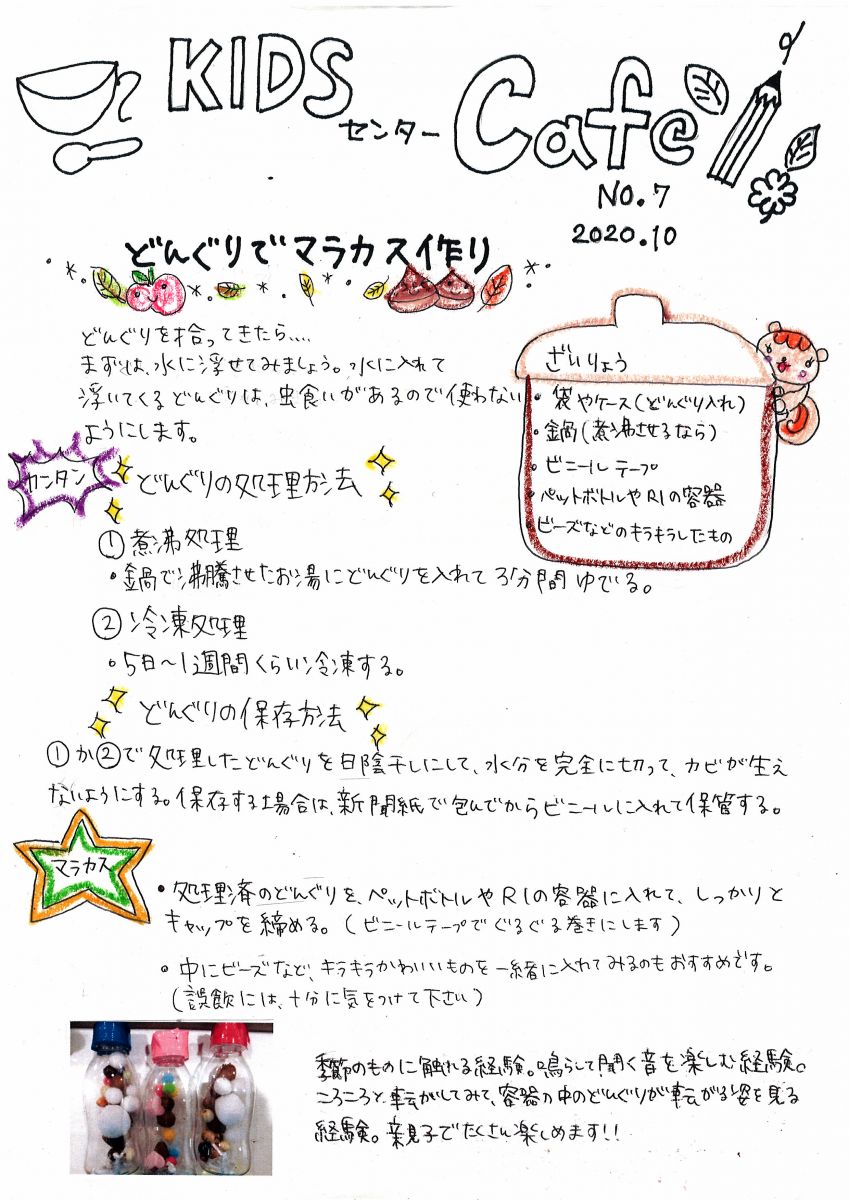 KIDS
センター
Cafe
NO.7
2020.10
どんぐりでマラカス作り
どんぐりを拾ってきたら....
まずは、水に浮せてみましょう。水に入れて
浮いてくるどんぐりは、虫食いがあるので使わない
ようにします。
ざいりょう
・袋やケース(どんぐり入れ)
・鍋(煮沸させるなら)
・ビニールテープ
・ペットボトルやR1の容器
・ビーズなどのキラキラしたもの
カンタン
どんぐりの処理方法
①煮沸処理
・鍋で沸騰させたお湯にどんぐりを入れて3分間ゆでる。
②冷凍処理
・5日〜1週間くらい冷凍する。
どんぐりの保存方法
①か②で処理したどんぐりを日陰干しにして、水分を完全に切って、カビが生え
ないようにする。保存する場合は、新聞紙で包んでからビニールに入れて保管する。
マラカス
・処理済のどんぐりを、ペットボトルやR1の容器に入れて、しっかりと
キャップを締める。(ビニールテープでぐるぐる巻きにします)
・中にビーズなど、キラキラかわいいものを一緒に入れてみるのもおすすめです。
(誤飲には、十分に気をつけて下さい)
季節のものに触れる経験。鳴らして聞く音を楽しむ経験。
ころころと転がしてみて、容器の中のどんぐりが転がる姿を見る
経験。親子でたくさん楽しめます!!